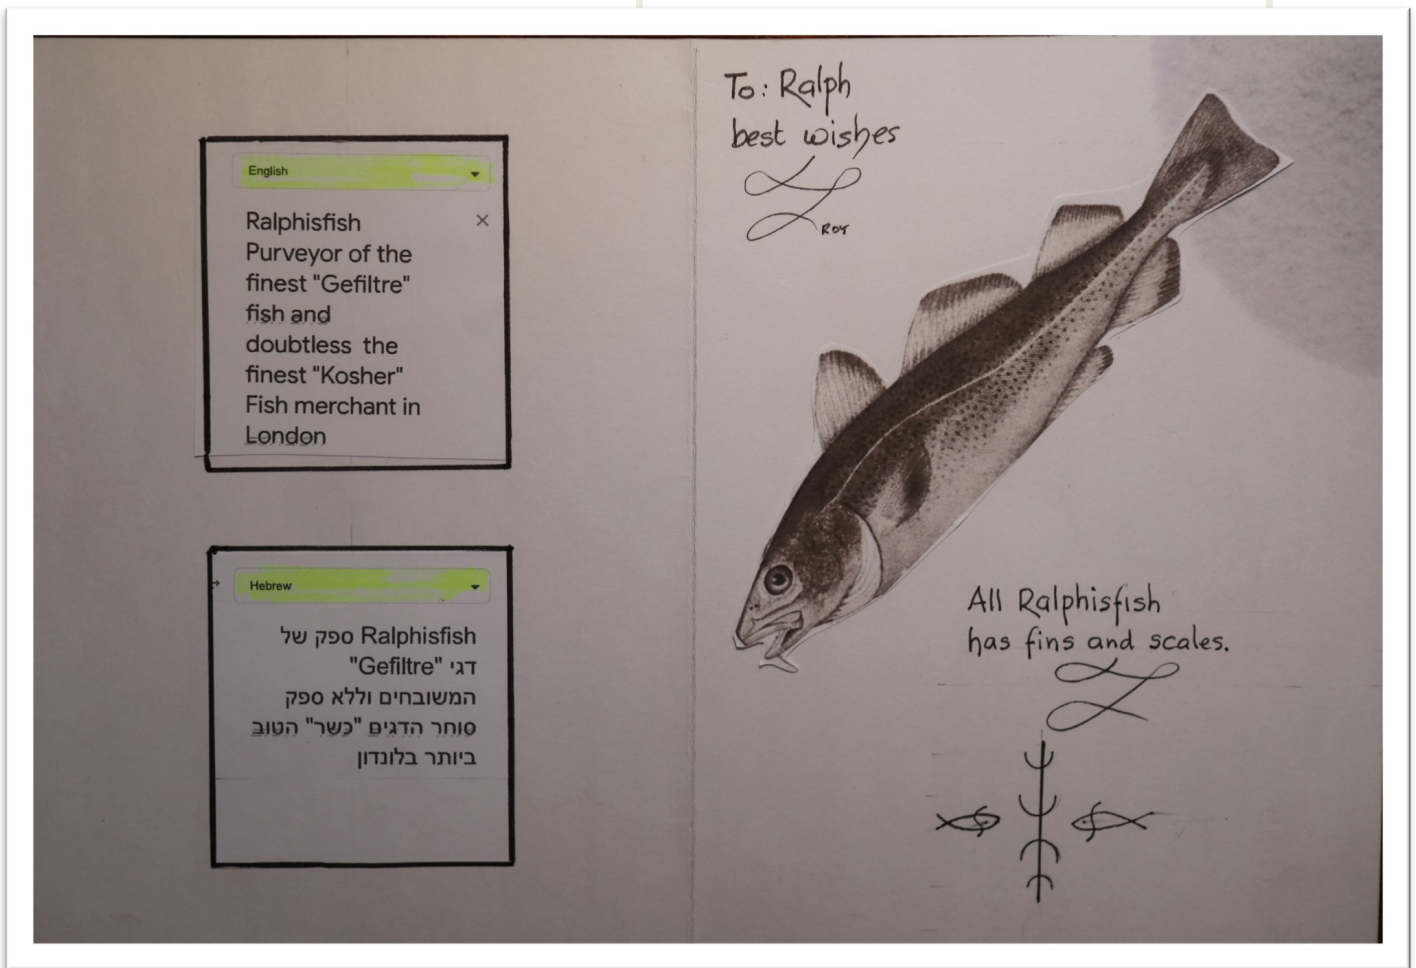 English
Ralphisfish
Purveyor of the
finest "Gefiltre"
fish and
doubtless the
finest "Kosher"
Fish merchant in
London
Hebrew
Ralphisfish ספק של
דגי "Gefiltre"
המשובחים וללא ספק
סוחר הדגים "כשר" הטוב
ביותר בלונדון
To: Ralph
best wishes
ROY
All Ralphisfish
has fins and scales.